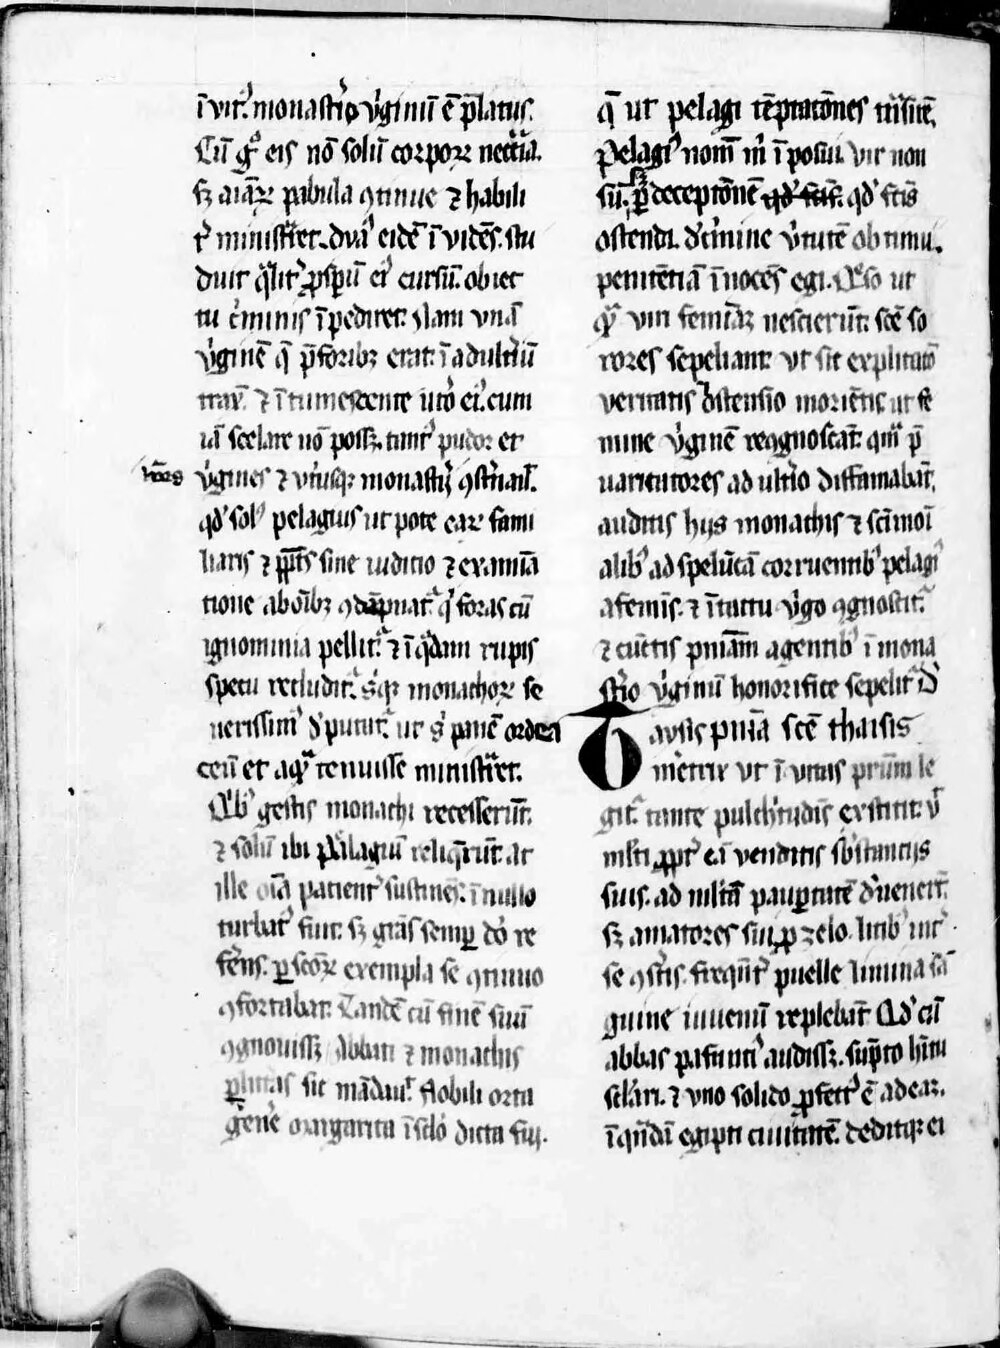 ī vitꝰ monastͥio v̓ginū ē p̄latus.
Cū gͦ eis nō solū corporꝝ necc̄īa.
sꝫ aīaꝝ pabula ꝯtinue ⁊ habili
tͬ ministͣret. dyaꝰ eidē īvidēs. stu
duit qͣlitͬ ꝓsꝑū eiꝰ cursū. obiec
tu cͥminis īpediret. Nam vnā
v̓ginē q̄ p̄foribꝫ erat. ī adultͥiū
traxͭ. ⁊ ītumescente utͦo eiꝰ. cum
iā scelare nō possꝫ. tantꝰ pudor et
v̓gines ⁊ vtͥusqꝫ monastͥij ꝯstͬnauͭ.
vͥros
qd̓ solꝰ pelagius ut pote eaꝝ fami
liaris ⁊ p̄pͭs sine iuditio ⁊ examīa
tione ab oīb̄ꝫ ꝯdāpnatͬ q̓ foras cū
ignominia pellitͬ. ⁊ ī qͣdam rupis
specu recluditͬ. sͥqꝫ monachoꝝ se
uerissimꝰ d̓putatͬ. ut sͥ panē ordea
ceū et aqͣ tenuissē ministͣret.
Qͥbꝰ gestis monachi recesserūt.
⁊ solū ibi Pelagiū reliqͬrūt. at
ille oīa patientͬ sustinēs. ī nullo
turbatꝰ fuit. sꝫ grās semꝑ dō re
fͤens. ꝑ scōꝝ exempla se ꝯtinuo
ꝯfortabat. Tandē cū finē suū
ꝯgnouissꝫ Abbati ⁊ monachis
ꝑ litt̄as sic mādauit. Nobili orta
gͤnē̄ Margarita ī sclō dicta fui.
q̄ ut pelagi tēptatōnes trͣsirē.
Pelagiꝰ nomē mͥ ī posui. Vir non
sū. ꝑ deceptōnē qd̓ fc̄is
sꝫ
ostendi. d̓ cͥmine v̓tutē obtinui.
penitētiā īnocēs egi. Qͥso ut
qͣ viri feminā nescierūt. sc̄e so
rores sepeliant. ut sit expͥltatō
veritatis ostensio moriētis ut fe
mine v̓ginē recognoscāt. quā p̄
uaricatores adultͥio diffamabāt.
auditis hijs monachi ⁊ scīmoī
alibꝰ ad spelūcā corruentibꝰ pelagiꝰ
a femīs. ⁊ ītactu v̓go ꝯgnoscitͬ.
⁊ cūctis pn̄iam agentibꝰ ī mona
stͥio v̓ginū honorifice sepelitͬ. D̓
Taysis pn̄ia sc̄e thaisis
mͤetrix ut ī vitas pr̄um le
gitͬ. tante pulcht̓udīs extitit. ut
mͥlti ꝓptͬ eā venditis sb̄stantijs
suis. ad ultīā pauꝑtatē d̓uenerͭ.
sꝫ amatores sui ꝓ zelo. litibꝰ intͬ
se ꝯsͬtis. freqn̄tͬ puelle limina sā
guine iuuenū replebāt. Qd̓ cū
abbas pafuntiꝰ audissꝫ. sūpto hītu
scl̄ari. ⁊ vno solido ꝓfectꝰ ē ad eā.
ī qn̄dā egipti ciuitatē. deditqꝫ ei